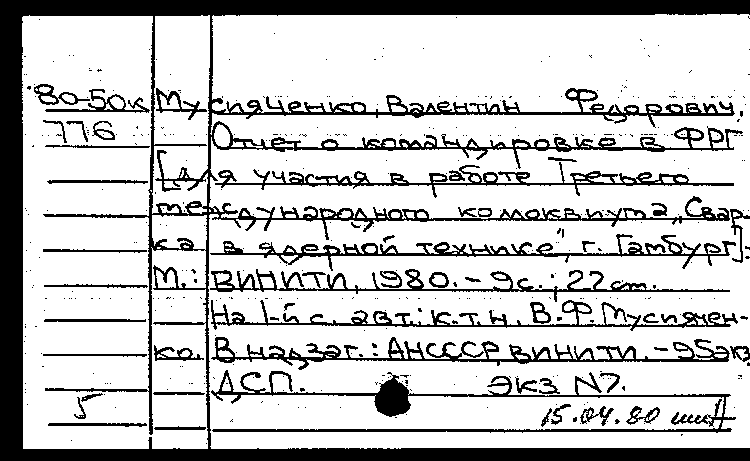 80-50к Мусияченко, Валентин Федорович.
776 Отчет о командировке в ФРГ
[для участия в работе Третьего
международного коллоквиума „Свар-
ка в ядерной технике", г. Гамбург].
М.: ВИНИТИ, 1980. - 9с.; 22 cm.
На 1-й с. авт.: к.т.н. В.Ф. Мусиячен-
ко. В надзаг.: АН СССР, ВИНИТИ. - 95экз
ДСП. Экз N7.
5 15.04.80